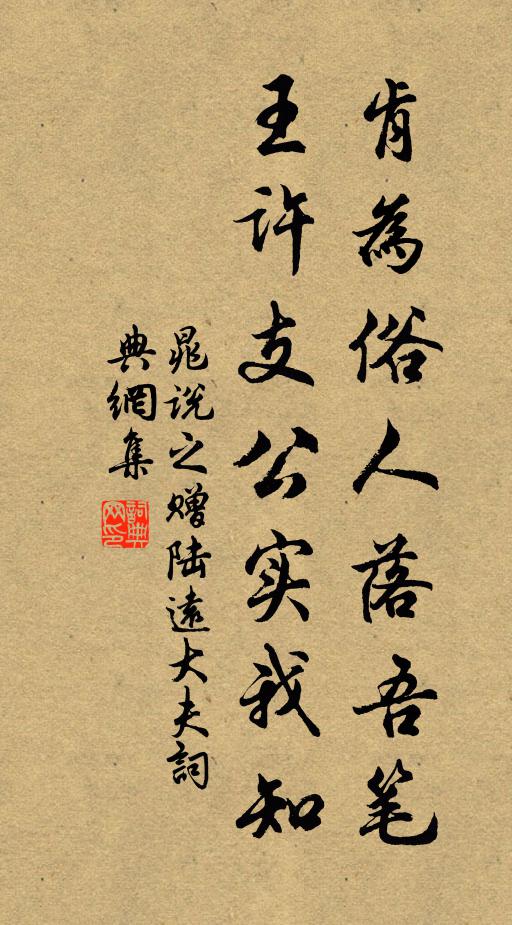 肯為俗人落吾笔
王许支公实我知
晁说之赠陆遠大夫詞
典網集
詞典网印